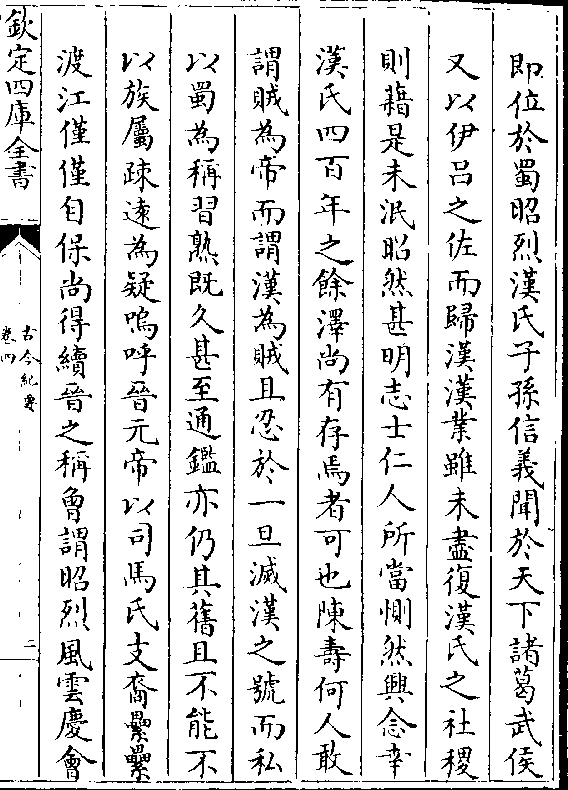 即位於蜀昭烈漢氏子孫信義聞於天下諸葛武侯
又以伊吕之佐而歸漢漢業雖未盡復漢氏之社稷
則藉是未泯昭然甚明志士仁人所當惻然興念幸
漢氏四百年之餘澤尚有存焉者可也陳壽何人敢
謂賊為帝而謂漢為賊且忍於一旦滅漢之號而私
以蜀為稱習熟既久甚至通鑑亦仍其舊且不能不
以族屬疎遠為疑嗚呼晉元帝以司馬氏支裔纍纍
渡江僅僅自保尚得續晉之稱曾謂昭烈風雲慶會
欽定四庫全書
古今紀要
卷四
二